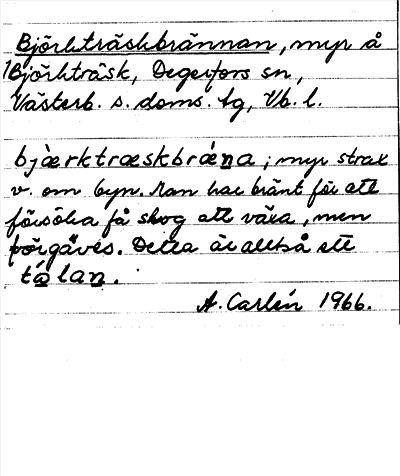 Björkträskbrännan, myr å
Björkträsk, Degerfors sn,
Västerb. s. doms. tg, Vb. l.
bjærktræskbræ̀na ; myr strax
v. om byn. Man har bränt för att
försöka få skog att växa, men
förgäves. Detta är alltså ett
tálan.
A. Carlén 1966.